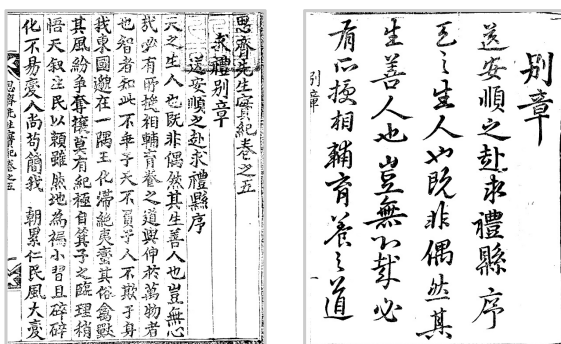 思齊先生實紀卷之五
求禮別章
送安順之赴求禮縣序
天之生人也既非偶然其生善人也豈無心
哉必有所援相輔育養之道與伸於萬物者
也智者知此不卑乎天不負乎人不欺于身
我東國邈在一隅王化滯絶夷蠻其俗禽獸
其風紛爭奪攘莫有紀極自箕子之臨理稍
悟天叙注民以賴雖然地為褊小習且碎碎
化不易愛人尚苟簡我 朝累仁民風大變
思齊先生實紀卷之五
別章
送安順之赴求禮縣序
天之生人也既非偶然其
生善人也豈無心哉必
有所援相輔育養之道
別章
一